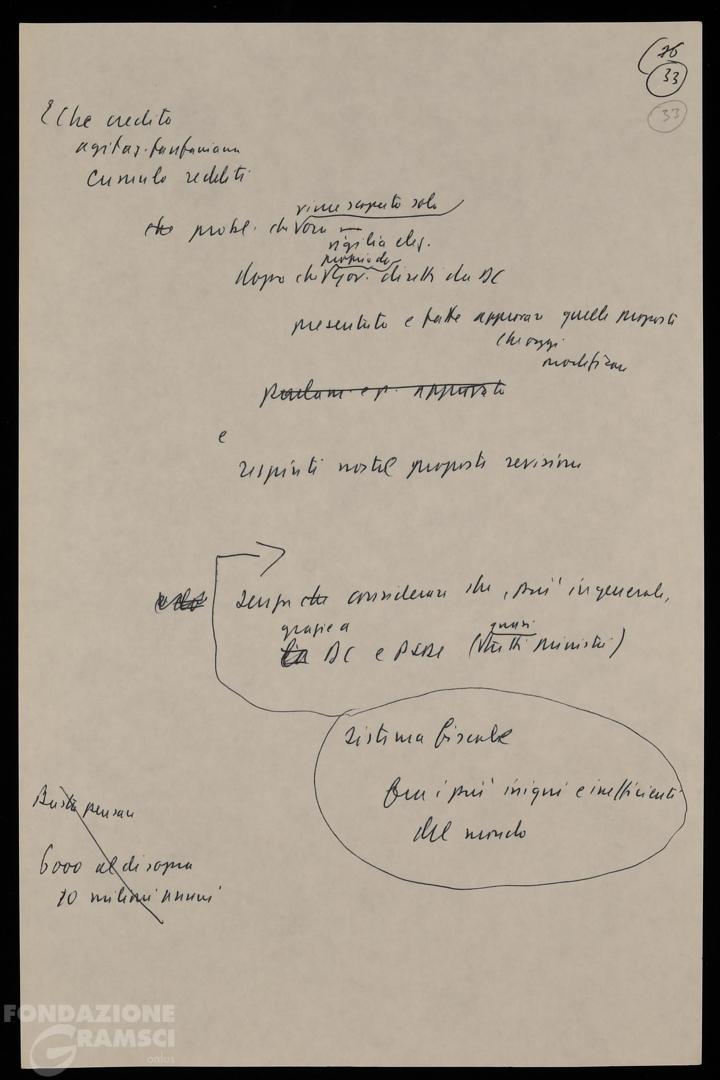 26
33
33
E che credito
agitaz. fanfaniana
cumulo redditi
viene scoperto solo
che probl. ch
vigilia elez.
proprio da
dopo che Gov. diretti da DC
presentato e fatte approvare quelle proposte
che oggi
modificare
e
respinti nostre proposte revisione
senza che considerare che, più in generale,
grazie a
quasi
la DC e PSDI (tutti ministri)
sistema fiscale
fra i più iniqui e inefficienti
del mondo
Basta pensare
6000 al di sopra
10 milioni annui
FONDAZIONE
GRAMSCI
onlus